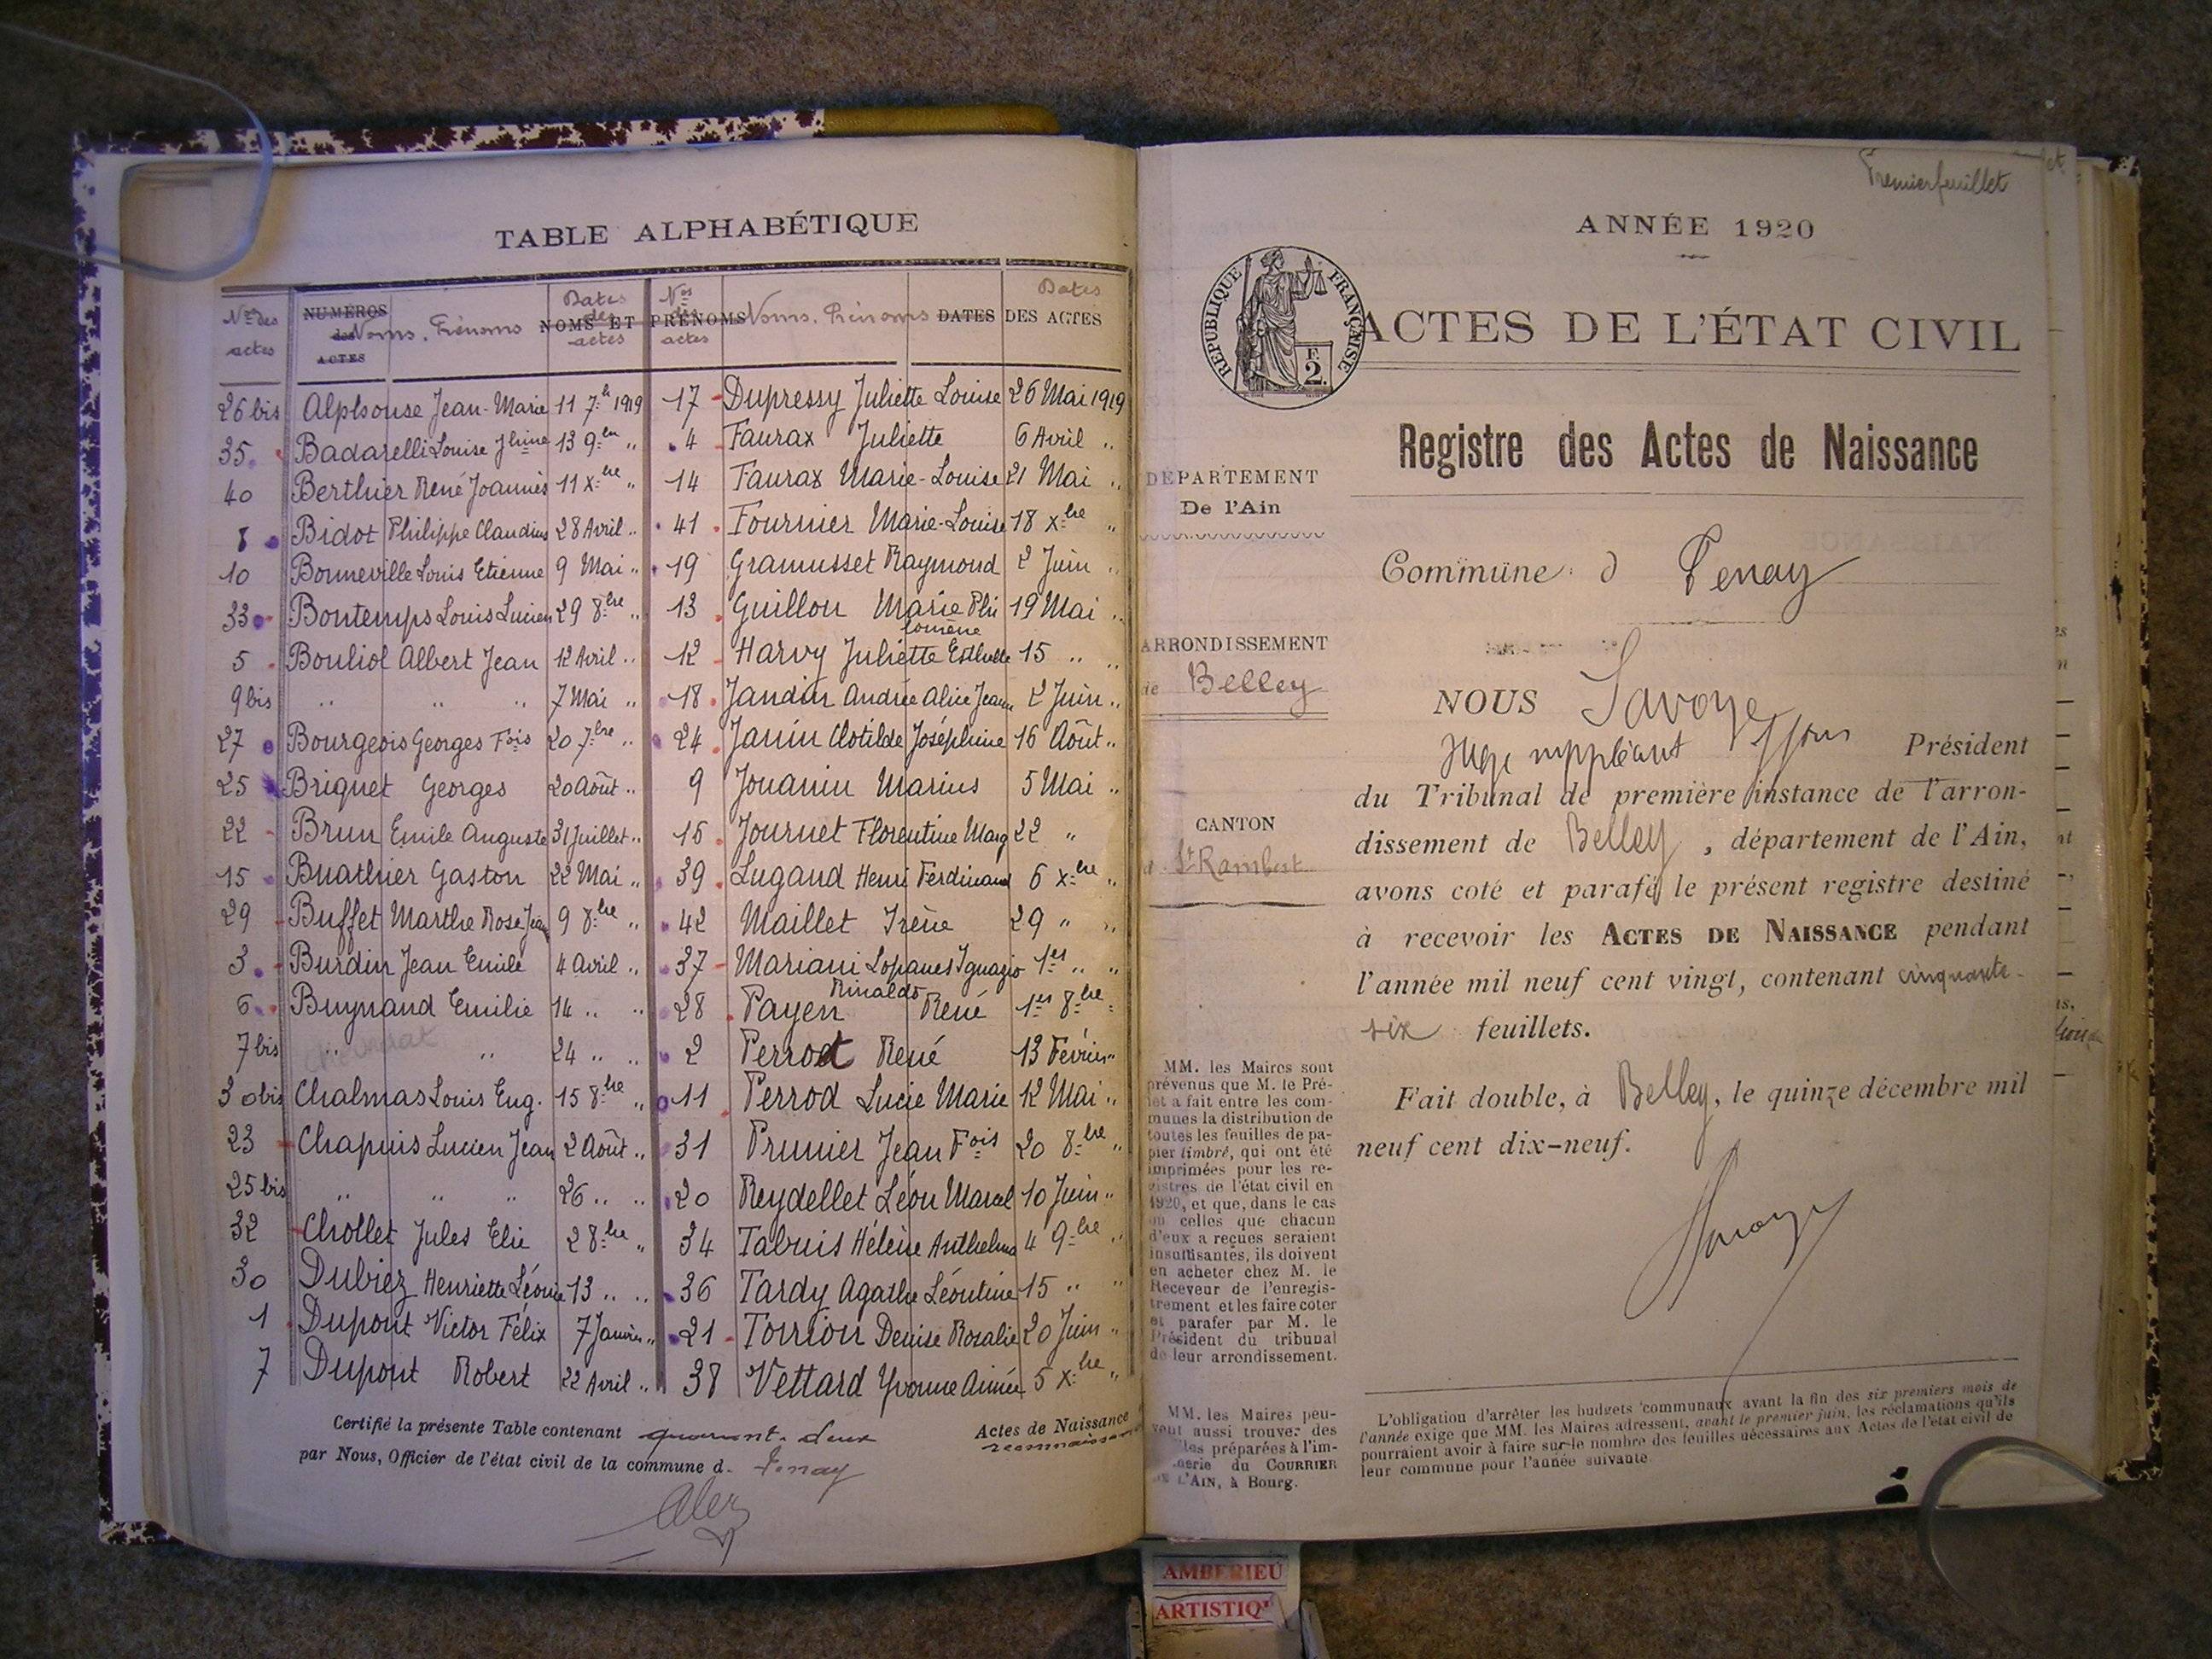 TABLE ALPHABÉTIQUE
Nos des actes NUMÉROS des ACTES Noms. Prénoms Dates des actes NOMS ET PRÉNOMS Nos des actes Noms. Prénoms DATES DES ACTES Dates
26 bis Alphonse Jean-Marie 11 7bre 1919
35 Badarelli Louise Jhine 13 9bre "
40 Berthier René Joannès 11 Xbre "
8 Bidot Philippe Claudius 28 Avril "
10 Bonneville Louis Etienne 9 Mai "
33 Bontemps Louis Lucien 29 8bre "
5 Bouliol Albert Jean 12 Avril "
9 bis " " " 7 Mai "
27 Bourgeois Georges Fois 20 7bre "
25 Briquet Georges 20 Août "
22 Brun Emile Auguste 31 Juillet "
15 Buathier Gaston 22 Mai "
29 Buffet Marthe Rose Jea 9 8bre "
3 Burdin Jean Emile 4 Avril "
6 Buynand Emilie 14 " "
7 bis " " 24 " "
30 bis Chalmas Louis Eug. 15 8bre "
23 Chapuis Lucien Jean 2 Août "
25 bis " " " 26 " "
32 Chollet Jules Elie 2 8bre "
30 Dubiez Henriette Léonie 13 " "
1 Dupont Victor Félix 7 Janvier "
7 Dupont Robert 22 Avril "
17 Dupressy Juliette Louise 26 Mai 1919
4 Faurax Juliette 6 Avril "
14 Faurax Marie-Louise 21 Mai "
41 Fournier Marie-Louise 18 Xbre "
19 Gramusset Raymond 2 Juin "
13 Guillon Marie Phi 19 Mai "
lomène
12 Harvy Juliette Esthelle 15 " "
18 Jandin Andrée Alice Jean 2 Juin "
24 Janin Clotilde Joséphine 16 Août "
9 Jouanin Marius 5 Mai "
16 Journet Florentine Marg 22 "
39 Lugand Henri Ferdinand 6 Xbre "
42 Maillet Irène 29 " "
37 Mariani Lopanes Ignazio 1er " "
Rinaldo
28 Payen René 1er 8bre "
2 Perrod René 13 Février "
11 Perrod Lucie Marie 12 Mai "
31 Prunier Jean Fois 20 8bre "
20 Reydellet Léon Marcel 10 Juin "
34 Tabuis Hélène Anthelme 4 9bre "
36 Tardy Agathe Léontine 15 " "
21 Torrion Denise Rosalie 20 Juin "
38 Vettard Yvonne Aimée 5 Xbre "
Certifié la présente Table contenant quarant. deux Actes de Naissance
reconnaissan
par Nous, Officier de l'état civil de la commune d. Tenay
Premier feuillet
ANNÉE 1920
RÉPUBLIQUE FRANÇAISE
F.
2.
ACTES DE L'ÉTAT CIVIL
Registre des Actes de Naissance
DÉPARTEMENT
De l'Ain
Commune d Tenay
ARRONDISSEMENT
de Belley
NOUS Savoye
Juge suppléant Président
du Tribunal de première instance de l'arron-
dissement de Belley, département de l'Ain,
avons coté et parafé le présent registre destiné
à recevoir les ACTES DE NAISSANCE pendant
l'année mil neuf cent vingt, contenant cinquante-
six feuillets.
Fait double, à Belley, le quinze décembre mil
neuf cent dix-neuf.
CANTON
d St Rambert
MM. les Maires sont
prévenus que M. le Pré-
fet a fait entre les com-
munes la distribution de
toutes les feuilles de pa-
pier timbré, qui ont été
imprimées pour les re-
gistres de l'état civil en
1920, et que, dans le cas
ou celles que chacun
d'eux a reçues seraient
insuffisantes, ils doivent
en acheter chez M. le
Receveur de l'enregis-
trement et les faire coter
et parafer par M. le
Président du tribunal
de leur arrondissement.
MM. les Maires peu-
vent aussi trouver des
les préparées à l'im-
merie du COURRIER
DE L'AIN, à Bourg.
L'obligation d'arrêter les budgets communaux avant la fin des six premiers mois de
l'année exige que MM. les Maires adressent, avant le premier juin, les réclamations qu'ils
pourraient avoir à faire sur le nombre des feuilles nécessaires aux Actes de l'état civil de
leur commune pour l'année suivante.
AMBERIEU
ARTISTIQ